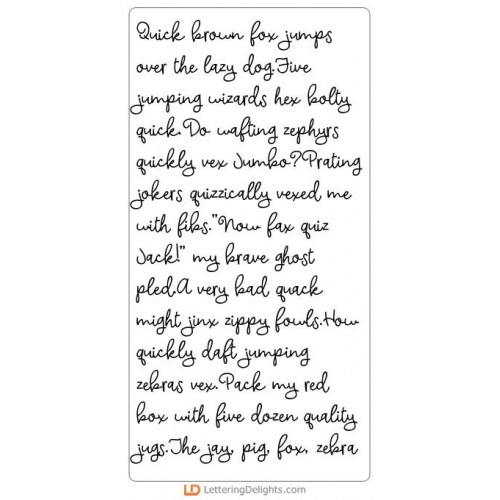 Quick brown fox jumps
over the lazy dog.Five
jumping wizards hex bolty
quick.Do wafting zephyrs
quickly vex Jumbo?Prating
jokers quizzically vexed me
with fibs."Now fax quiz
Jack!" my brave ghost
pled.A very bad quack
might jinx zippy fowls.How
quickly daft jumping
zebras vex.Pack my red
box with five dozen quality
jugs.The jay, pig, fox, zebra
LD LetteringDelights.com